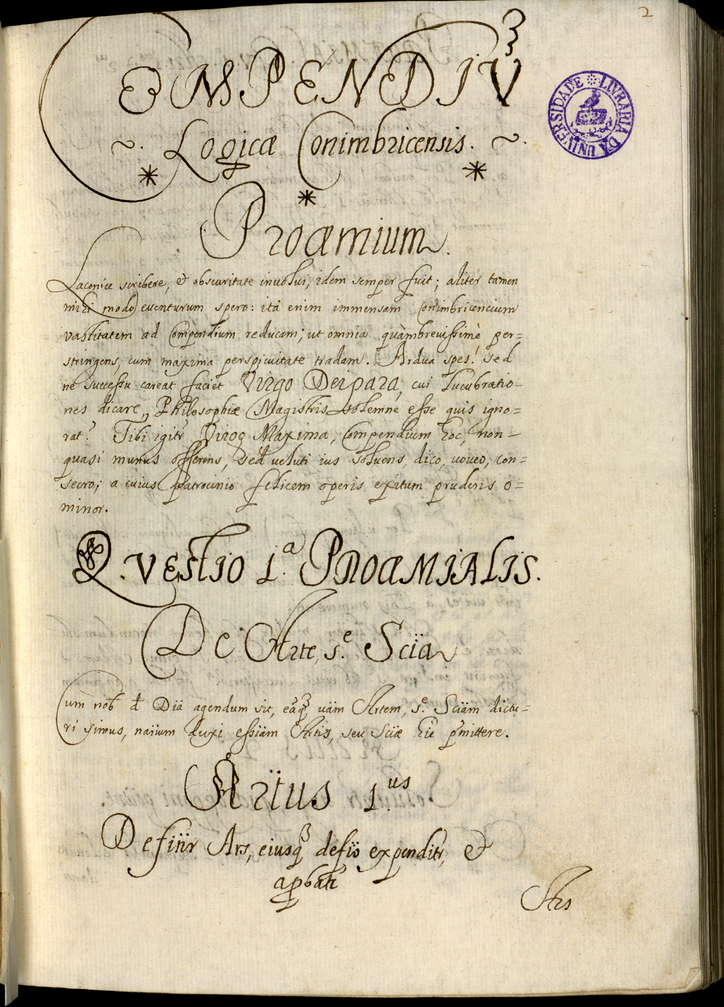 2
COMPENDIŨ
~. Logicæ Conimbricensis. ~.
Proœmium.
Laconice scribere, & obscuritate involui, idem semper fuit; aliter tamen
mihi modo euenturum spero: ità enim immensam Conimbricencium
vastitatem ad Compendium reducam; ut omnia quàmbreuissimè per=
stringens, cum maxima perspicuitate tradam. Ardua spes! sed
ne successu careat faciet Virgo Deipara, cui lucubratio=
nes dicare, Philosophiæ Magistris solemne esse quis igno=
rat? Tibi igitr Virgo Maxima, Compendium hoc, non
quasi munus offerens, sed veluti ius soluens, dico, voueo, con=
secro; a cuius patrocinio felicem operis exitum prudens o=
minor.
QVESTIO 1.ª PROŒMIALIS.
De Arte, s.e Sciã
Cum nob d Diã agendum sit, eãq uãm Artem, s.e Sciãm dictu=
ri simus, naiium duxi essiam Artis, seu Sciæ hic pmittere.
Artus 1.us
Definir Ars, eiusq defio expenditr, &
apbatr
Ars
LIVRARIA DA UNIVERSIDADE